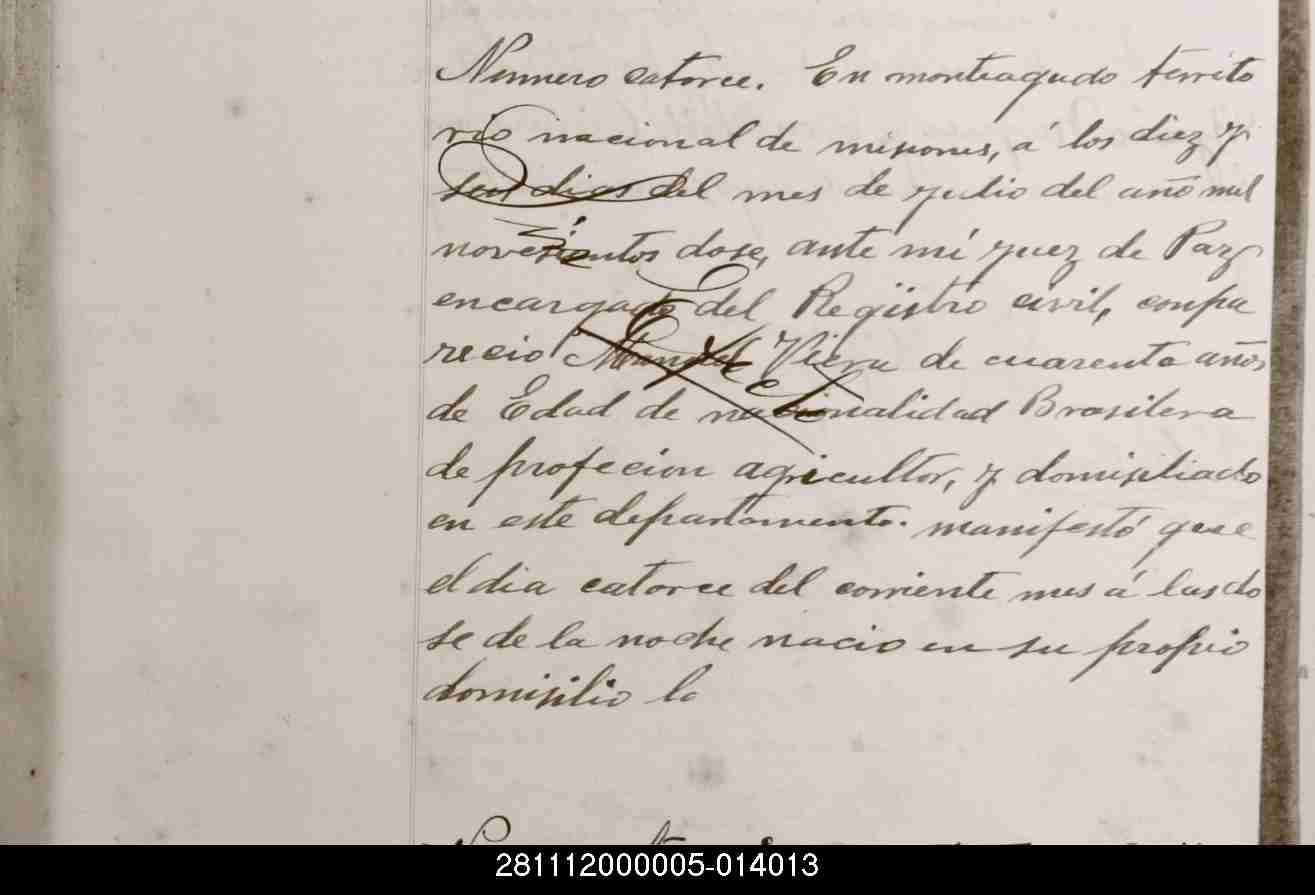 Numero catorce. En monteagudo territo
rio nacional de misiones, á los diez y
seis dias del mes de julio del año mil
novesientos dose, ante mí juez de Paz
encargado del Regístro civil, compa
recio Manuel Viera de cuarenta años
de Edad de nacionalidad Brasilera
de profecion agricultor, y domisiliado
en este departamento. manifestó que
el dia catorce del corriente mes á las do
se de la noche nacio en su propio
domisilio la
281112000005-014013